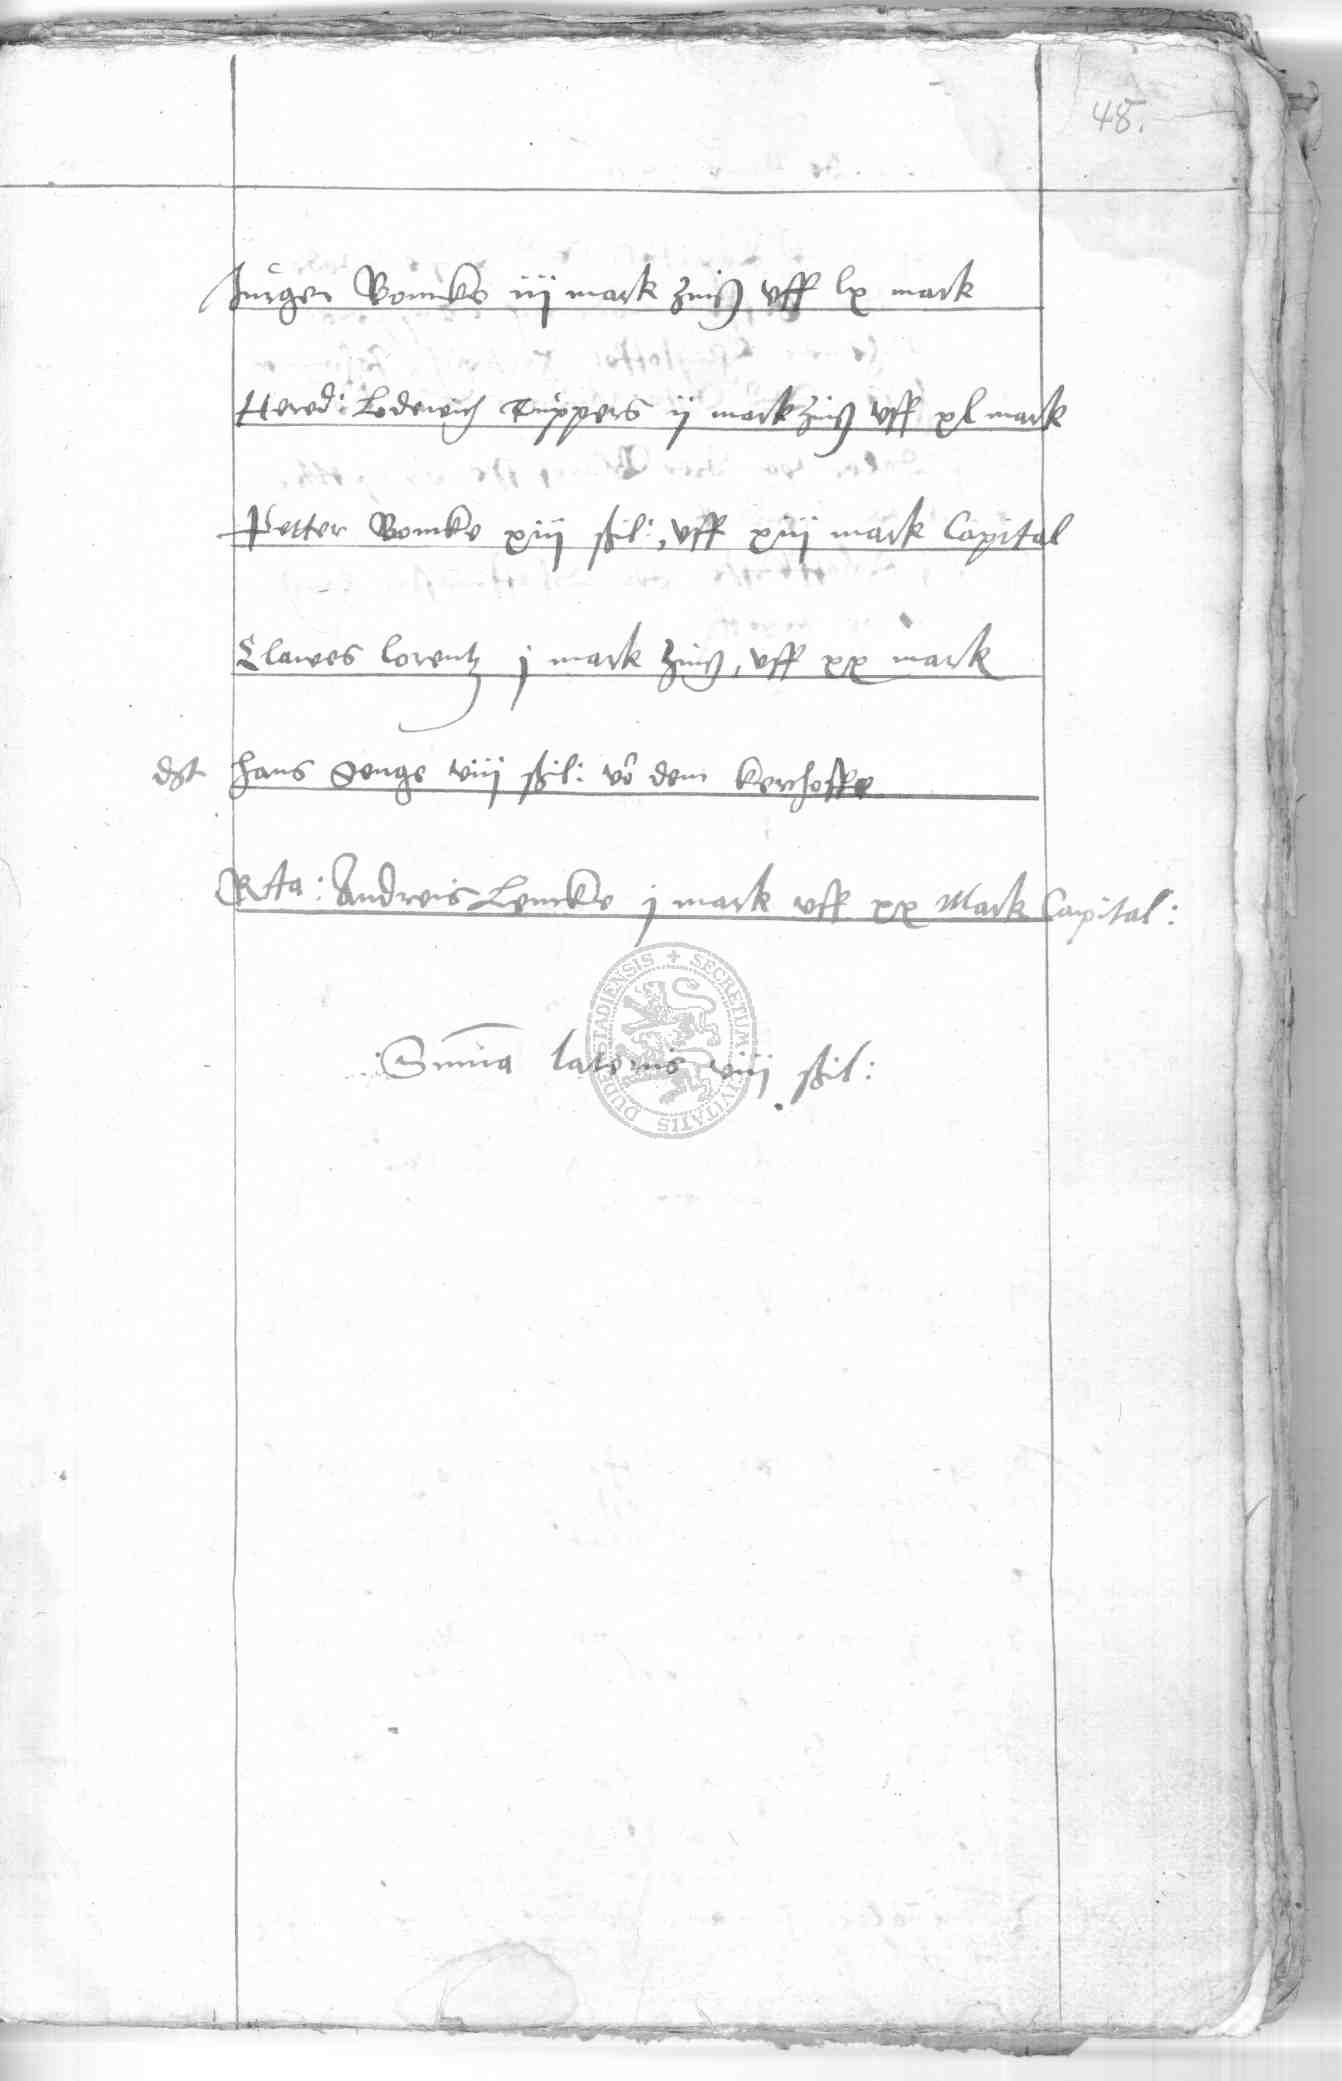 48.
Jurgen Bomcks iij mark Zinß vff lx mark
Hered: Lodewich Cüppers ij mark Zinß vff xl mark
Petter Bomcke xiij ßil:, vff xiij mark Capital
Clawes lorentz j mark Zinß, vff xx mark
dgt Hans Senge viij ßil: vō dem kerchoffe
Rta: Andreis Lemcke j mark vff xx Mark Capital:
Suma lateris viij ßil:
SECRETUM CIVITATIS DUDERSTADIENSIS